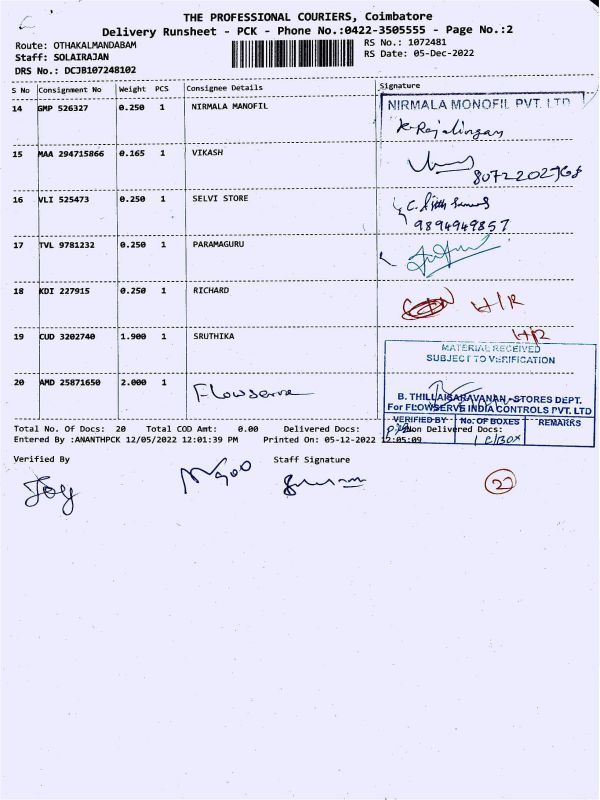 THE PROFESSIONAL COURIERS, Coimbatore
Delivery Runsheet - PCK - Phone No.:0422-3505555 - Page No.:2
Route: OTHAKALMANDABAM
RS No.: 1072481
Staff: SOLAIRAJAN
RS Date: 05-Dec-2022
DRS No.: DCJB107248102
S No Consignment No Weight PCS Consignee Details Signature
14 GMP 526327 0.250 1 NIRMALA MANOFIL
NIRMALA MONOFIL PVT. LTD
K-Rajalingam
15 MAA 294715866 0.165 1 VIKASH
8072202968
16 VLI 525473 0.250 1 SELVI STORE
9894949857
17 TVL 9781232 0.250 1 PARAMAGURU
18 KDI 227915 0.250 1 RICHARD
H/R
19 CUD 3202740 1.900 1 SRUTHIKA
H/R
MATERIAL RECEIVED
SUBJECT TO VERIFICATION
20 AMD 25871650 2.000 1 Flowserve
B. THILLAISARAVANAN -STORES DEPT.
For FLOWSERVE INDIA CONTROLS PVT. LTD
VERIFIED BY No: OF BOXES REMARKS
Total No. Of Docs: 20 Total COD Amt: 0.00 Delivered Docs: Non Delivered Docs:
Entered By :ANANTHPCK 12/05/2022 12:01:39 PM Printed On: 05-12-2022 12:05:09
Verified By Staff Signature
Joy